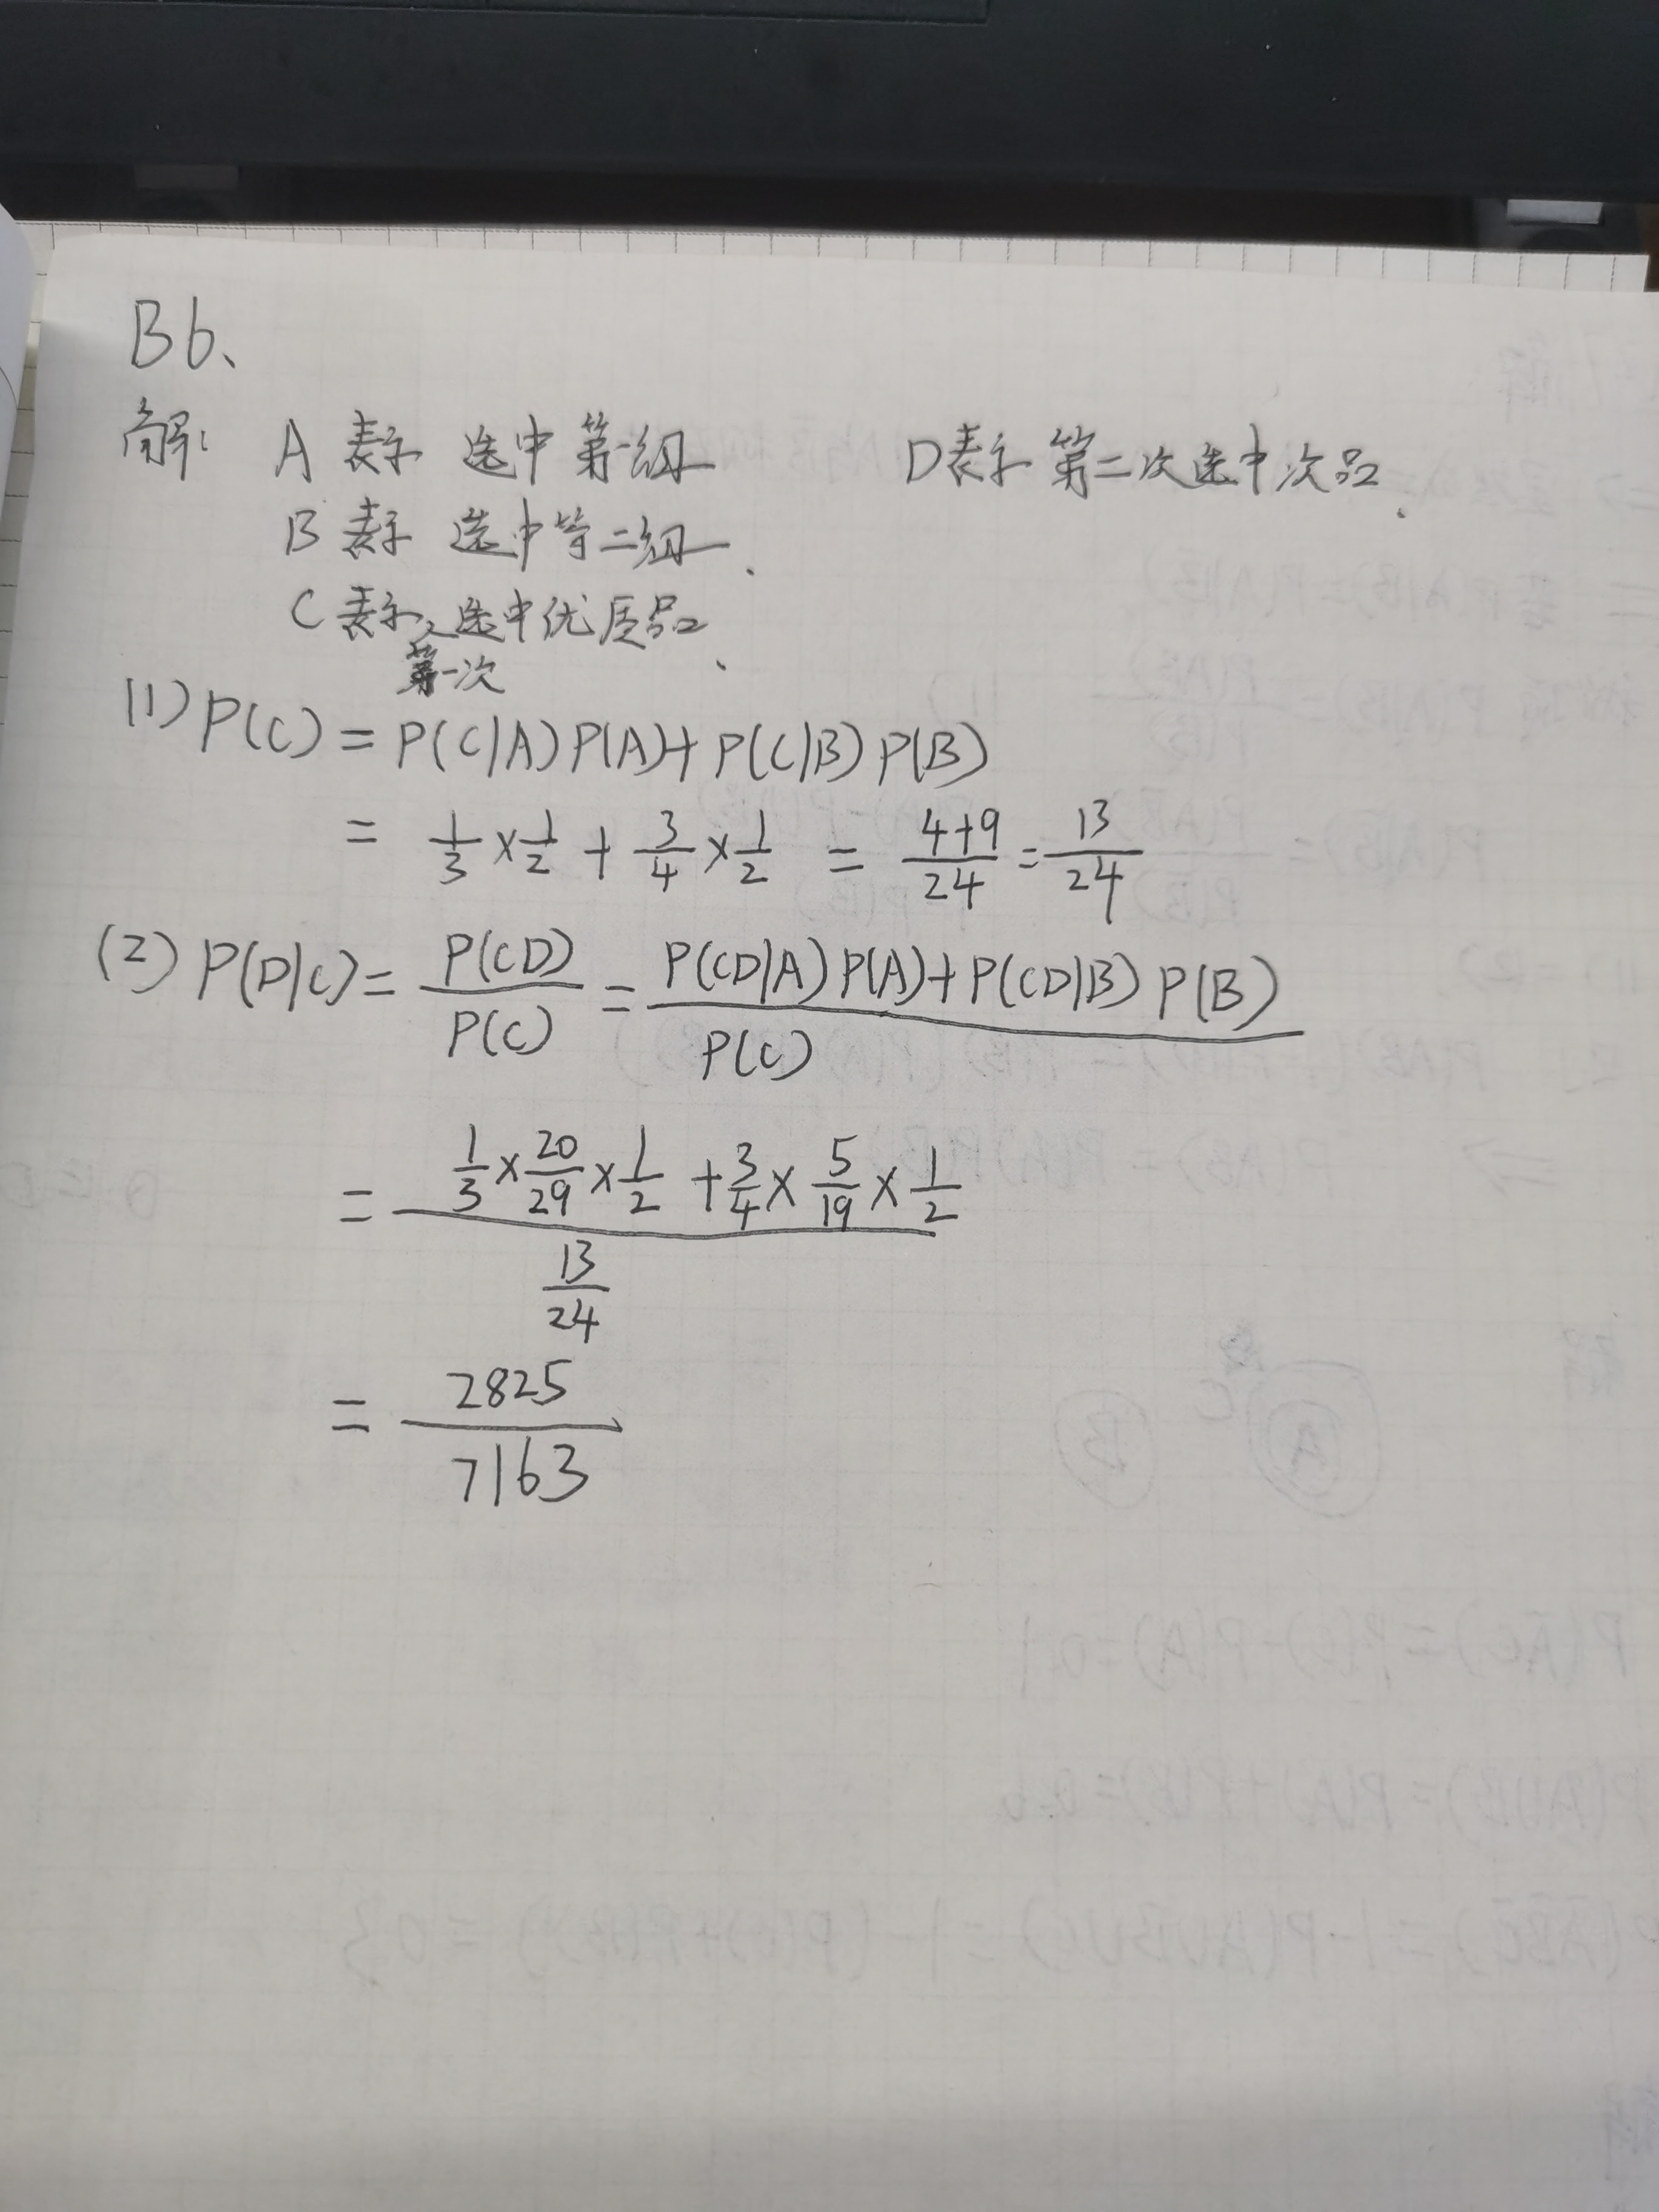 B6、
解: A 表示 选中 第一组 D表示 第二次选中次品.
B 表示 选中第二组、
C 表示 第一次 选中优质品、
(1) P(C) = P(C|A) P(A) + P(C|B) P(B)
= 1/3 × 1/2 + 3/4 × 1/2 = (4+9)/24 = 13/24
(2) P(D|C) = P(CD)/P(C) = (P(CD|A) P(A) + P(CD|B) P(B))/P(C)
= (1/3 × 20/29 × 1/2 + 3/4 × 5/19 × 1/2)/(13/24)
= 2825/7163